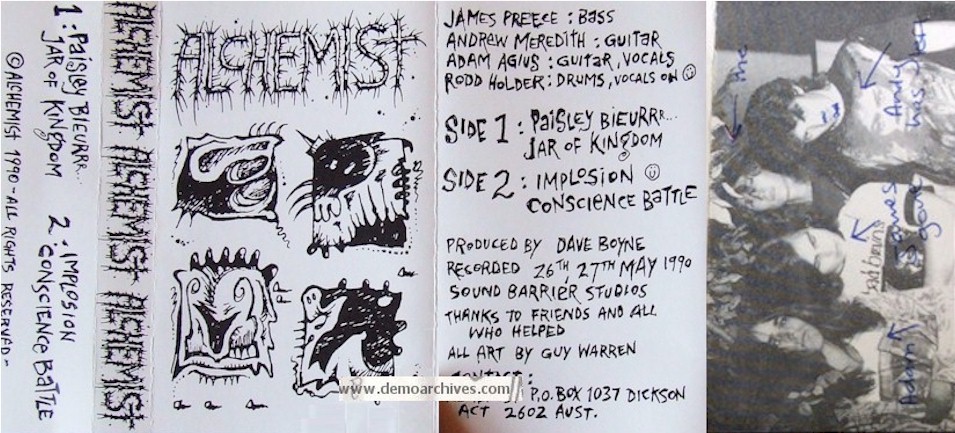 ©ALCHEMIST 1990 - ALL RIGHTS RESERVED -
1: PAISLEY BIEURRR...
JAR OF KINGDOM
2: IMPLOSION
CONSCIENCE BATTLE
ALCHEMIST ALCHEMIST ALCHEMIST ALCHEMIST
ALCHEMIST
JAMES PREECE : BASS
ANDREW MEREDITH : GUITAR
ADAM AGIUS : GUITAR, VOCALS
RODD HOLDER : DRUMS, VOCALS ON ☺
SIDE 1 : PAISLEY BIEURRR...
JAR OF KINGDOM
SIDE 2 : IMPLOSION ☺
CONSCIENCE BATTLE
PRODUCED BY DAVE BOYNE
RECORDED 26TH 27TH MAY 1990
SOUND BARRIER STUDIOS
THANKS TO FRIENDS AND ALL
WHO HELPED
ALL ART BY GUY WARREN
P.O. BOX 1037 DICKSON
ACT 2602 AUST.
www.demoarchives.com
me
Andy
has left
James
gone
bad brains
Adam